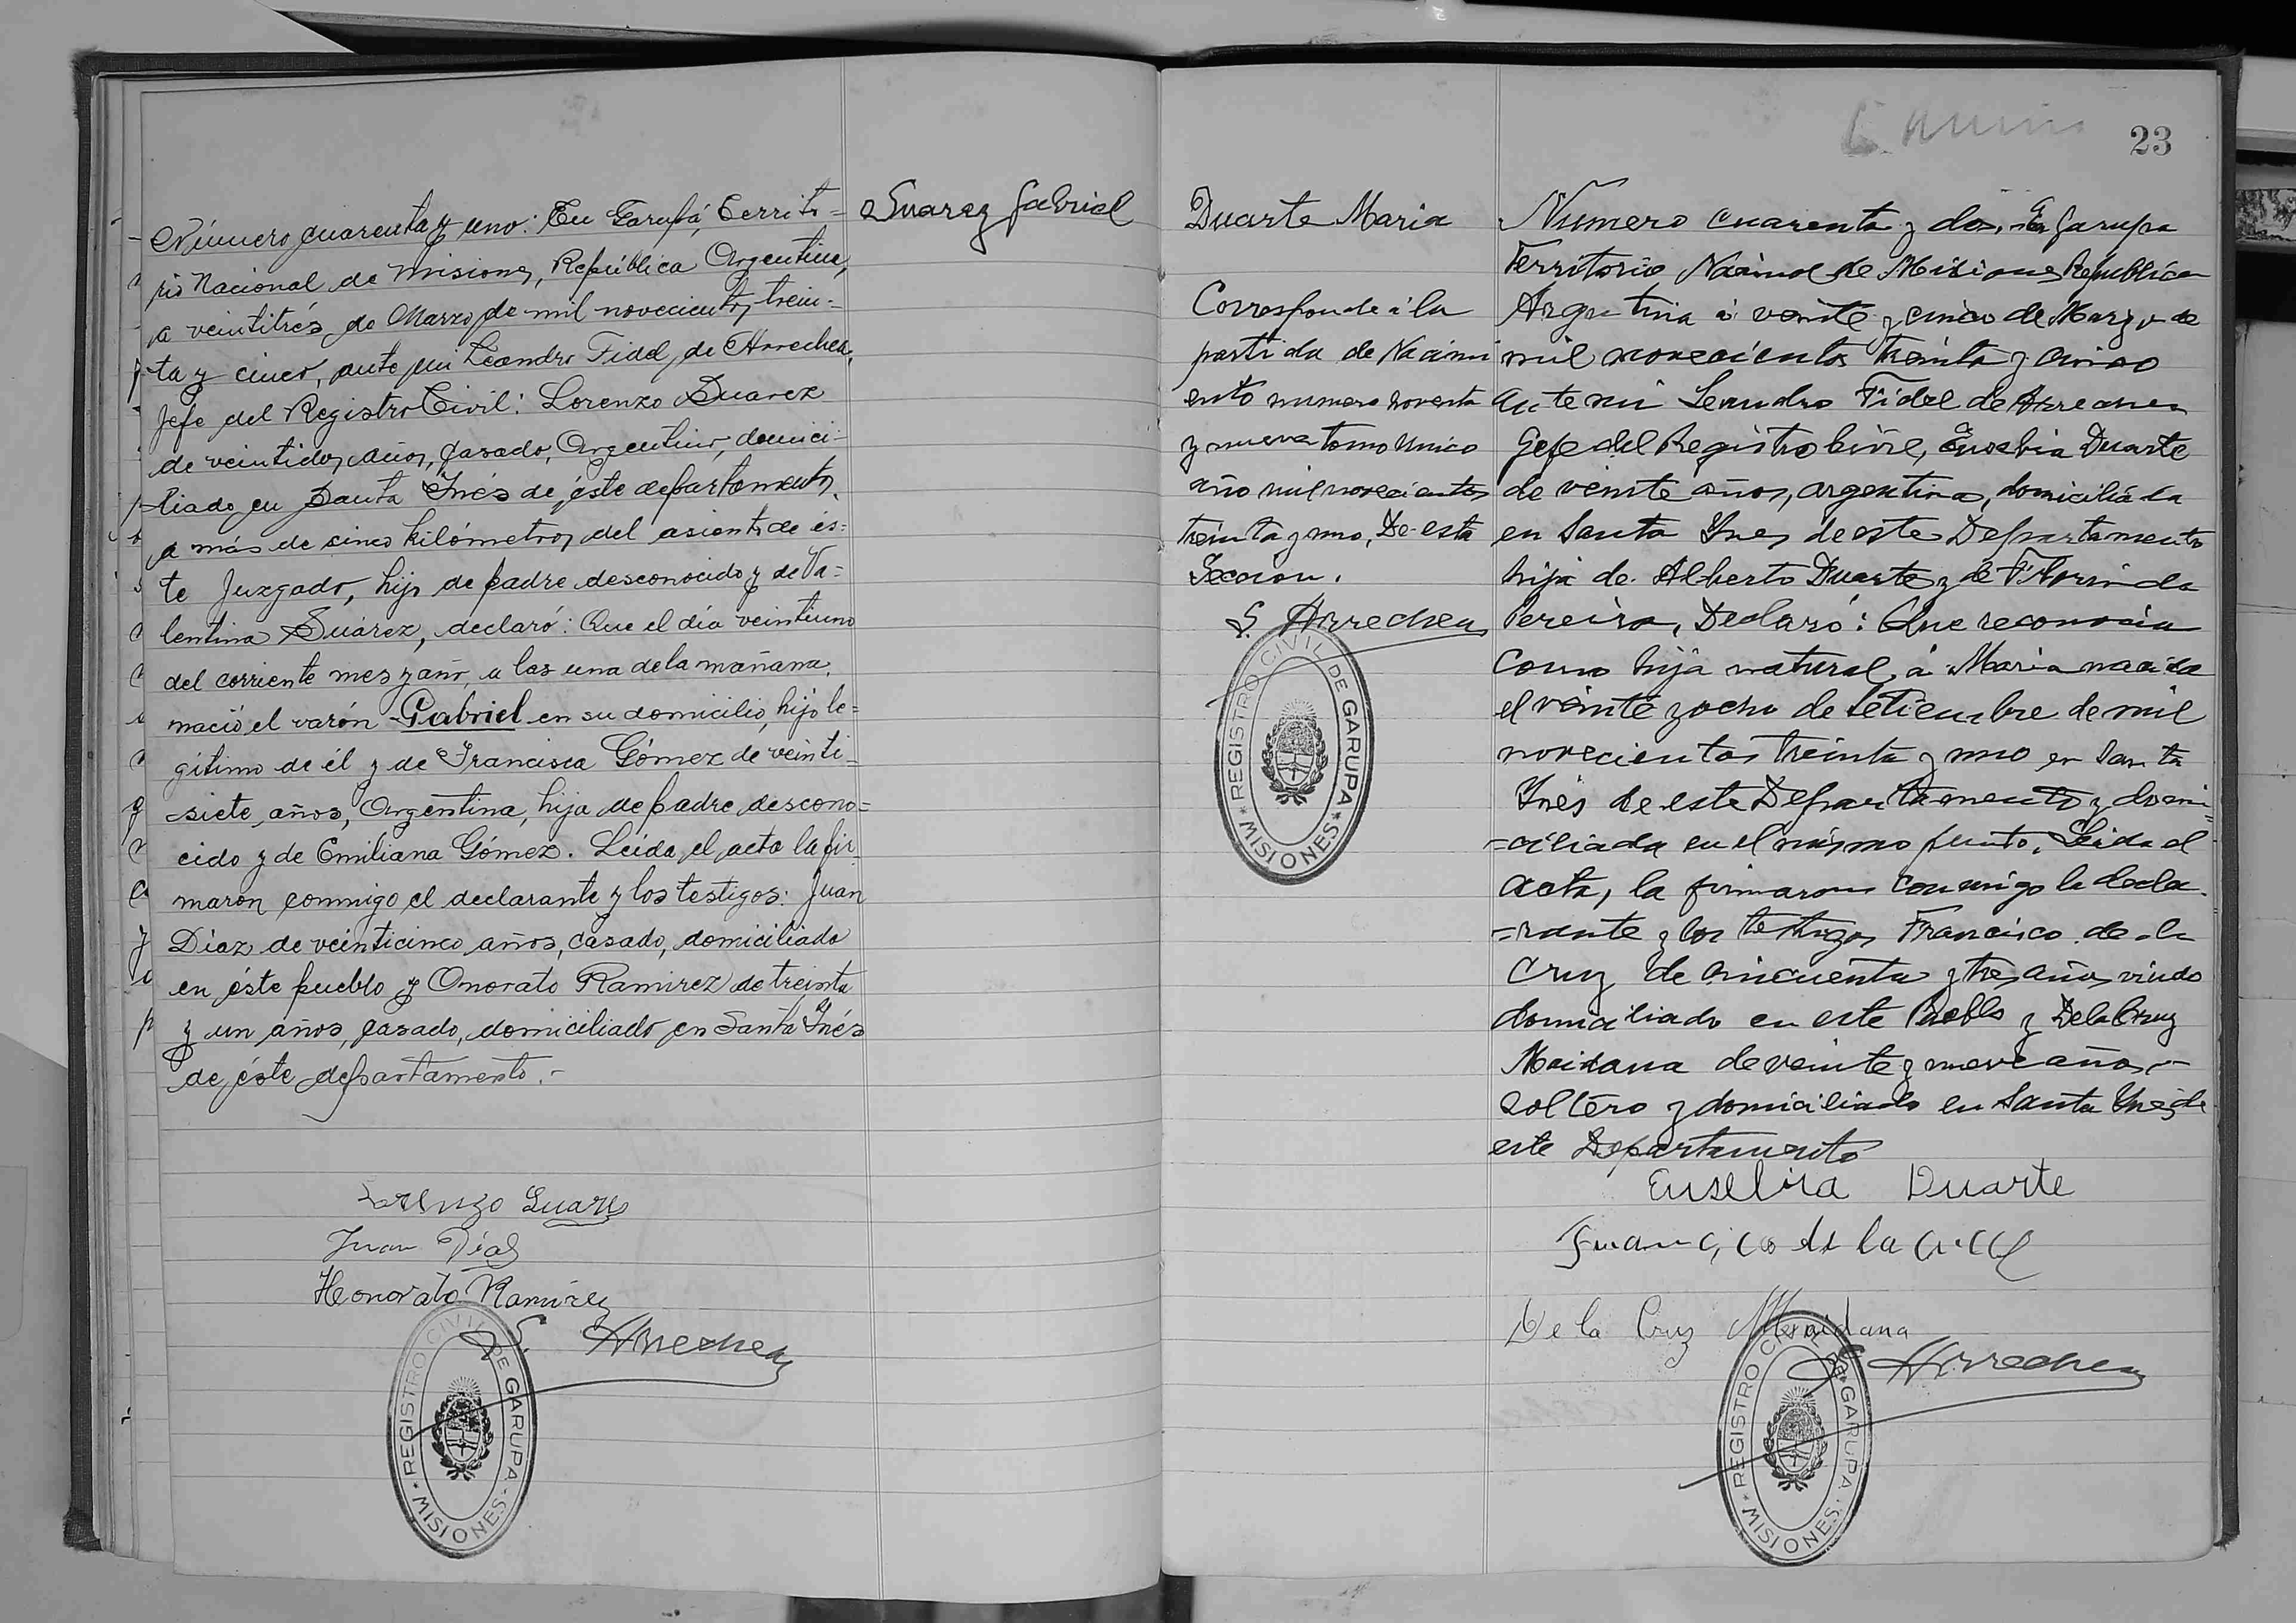 Número cuarenta y uno: En Garupá, Territo=
rio Nacional de Misiones, República Argentina,
a veintitrés de Marzo de mil novecientos trein=
ta y cinco, ante mi Leandro Fidel de Arrechea,
Jefe del Registro Civil: Lorenzo Suarez
de veintidos años, casado, Argentino, domici=
liado en Santa Inés de éste departamento,
a más de cinco kilómetros del asiento de és=
te Juzgado, hijo de padre desconocido y de Va=
lentina Suárez, declaró: Que el día veintiuno
del corriente mes y año, a las una de la mañana,
nació el varón Gabriel en su domicilio, hijo le=
gítimo de él y de Francisca Gómez de veinti=
siete años, Argentina, hija de padre descono=
cido y de Emiliana Gómez. Leída el acta la fir=
maron conmigo el declarante y los testigos: Juan
Díaz de veinticinco años, casado, domiciliado
en éste pueblo y Onorato Ramirez de treinta
y un años, casado, domiciliado en Santa Inés
de éste departamento.-
Lorenzo Suarez
Juan Díaz
Honorato Ramirez
L. Arrechea
REGISTRO CIVIL DE GARUPA
MISIONES
Suarez Gabriel
Duarte Maria
Corresponde á la
partida de Nacimi
ento numero noventa
y nueve tomo Unico
año mil novecientos
treinta y uno, De esta
Seccion.
L. Arrechea
REGISTRO CIVIL DE GARUPA
MISIONES
23
Numero cuarenta y dos. En Garupa
Territorio Nacional de Misiones Republica
Argentina á veinte y cinco de Marzo de
mil novecientos treinta y cinco
ante mi Leandro Fidel de Arrechea
Gefe del Registro Civil, Eusebia Duarte
de veinte años, argentina, domiciliada
en Santa Ynes de este Departamento
hija de Alberto Duarte y de Florinda
Pereira, Declaró: Que reconocia
como hija natural á Maria nacida
el veinte y ocho de Setiembre de mil
novecientos treinta y uno en Santa
Ynés de este Departamento y domi=
=ciliada en el mismo punto. Leida el
acta, la firmaron conmigo la decla=
=rante y los testigos Francisco de la
Cruz de cincuenta y tres años viudo
domiciliado en este Pueblo y De la Cruz
Maidana de veinte y nueve años
soltero y domiciliado en Santa Ynes de
este Departamento
Eusebia Duarte
Francisco de la Cruz
De la Cruz Maidana
L. Arrechea
REGISTRO CIVIL DE GARUPA
MISIONES